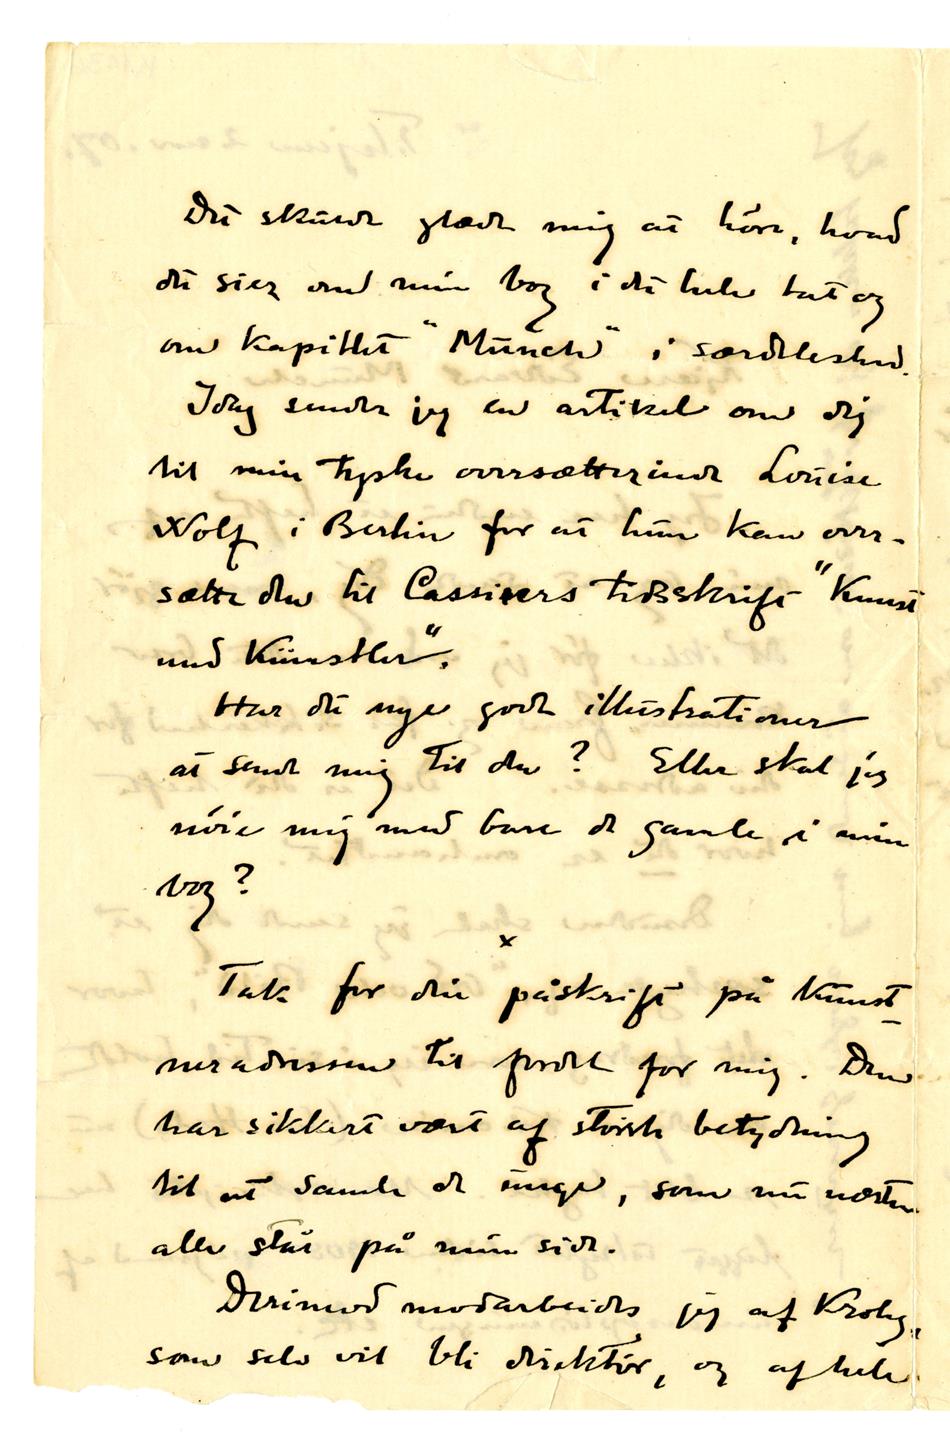 Det skulde glæde mig at höre, hvad
du sier om min bog i det hele tat og
om kapitlet "Munch" i særdeleshed.
Idag sender jeg en artikel om dig
til min tyske oversætterinde Louise
Wolf i Berlin for at hun kan over-
sætte den til Cassirers tidsskrift "Kunst
und Künstler".
Har du nye gode illustrationer
at sende mig til den? Eller skal jeg
nöie mig med bare de gamle i min
bog?
x
Tak for din påskrift på kunst-
neradressen til fordel for mig. Den
har sikkert vært af störste betydning
til at samle de unge, som nu næsten
alle står på min side.
Derimod modarbeides jeg af Krohg,
som selv vil bli direktör, og af hele